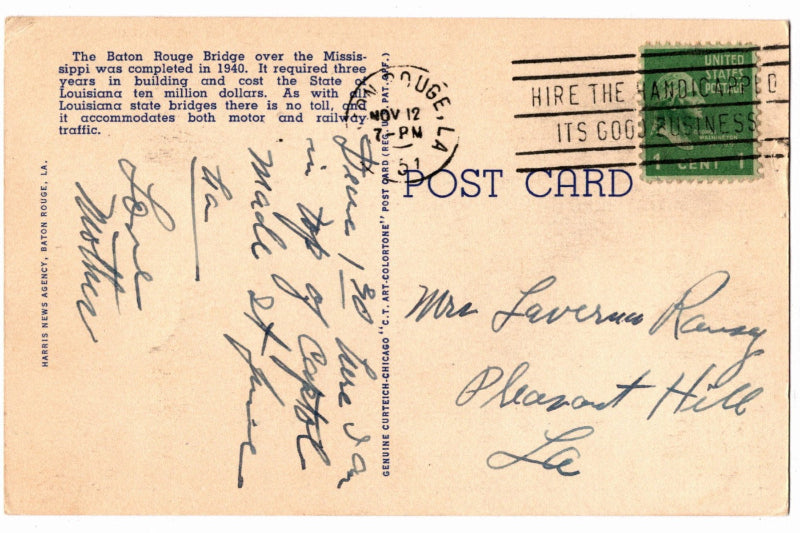 The Baton Rouge Bridge over the Missis-
sippi was completed in 1940. It required three
years in building and cost the State of
Louisiana ten million dollars. As with all
Louisiana state bridges there is no toll, and
it accommodates both motor and railway
traffic.
HARRIS NEWS AGENCY, BATON ROUGE, LA.
1 30 here I am
in top of Captol
made it fine
ha
Love
Mother
GENUINE CURTEICH-CHICAGO "C.T. ART-COLORTONE" POST CARD (REG. U.S. PAT. OFF.)
ROUGE, LA
NOV 12
7-PM
51
HIRE THE HANDICAPPED
ITS GOOD BUSINESS
UNITED
STATES
POSTAGE
WASHINGTON
1 CENT 1
POST CARD
Mrs Lavernes Ramsy
Pleasant Hill
La